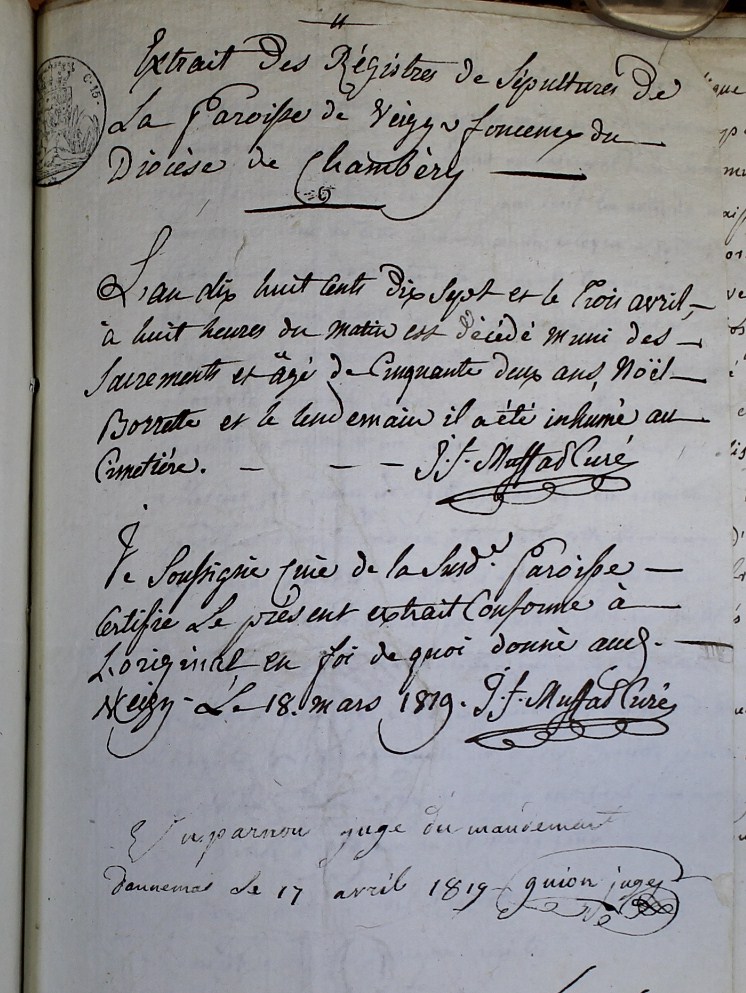 Extrait Des Régistres de Sépultures De
La Paroisse de Veigy foncenex du
Diocèse de Chambèry
L'an dix huit Cents Dix Sept et le Trois avril,
à huit heures du matin est décédé muni des
Sacrements et âgé de Cinquante deux ans, Noël
Borrette et le lendemain il a été inhumé au
Cimetiére. - - - J. f. Muffad Curé
Je Soussigné Curé de la Susd.e Paroisse
Certifie Le présent extrait Conforme à
L'original en foi de quoi donné aud.
Veigy - Le 18. mars 1819. J. f. Muffad Curé
Vu par nou juge du mandement
Dannemas Le 17 avril 1819 guion juge